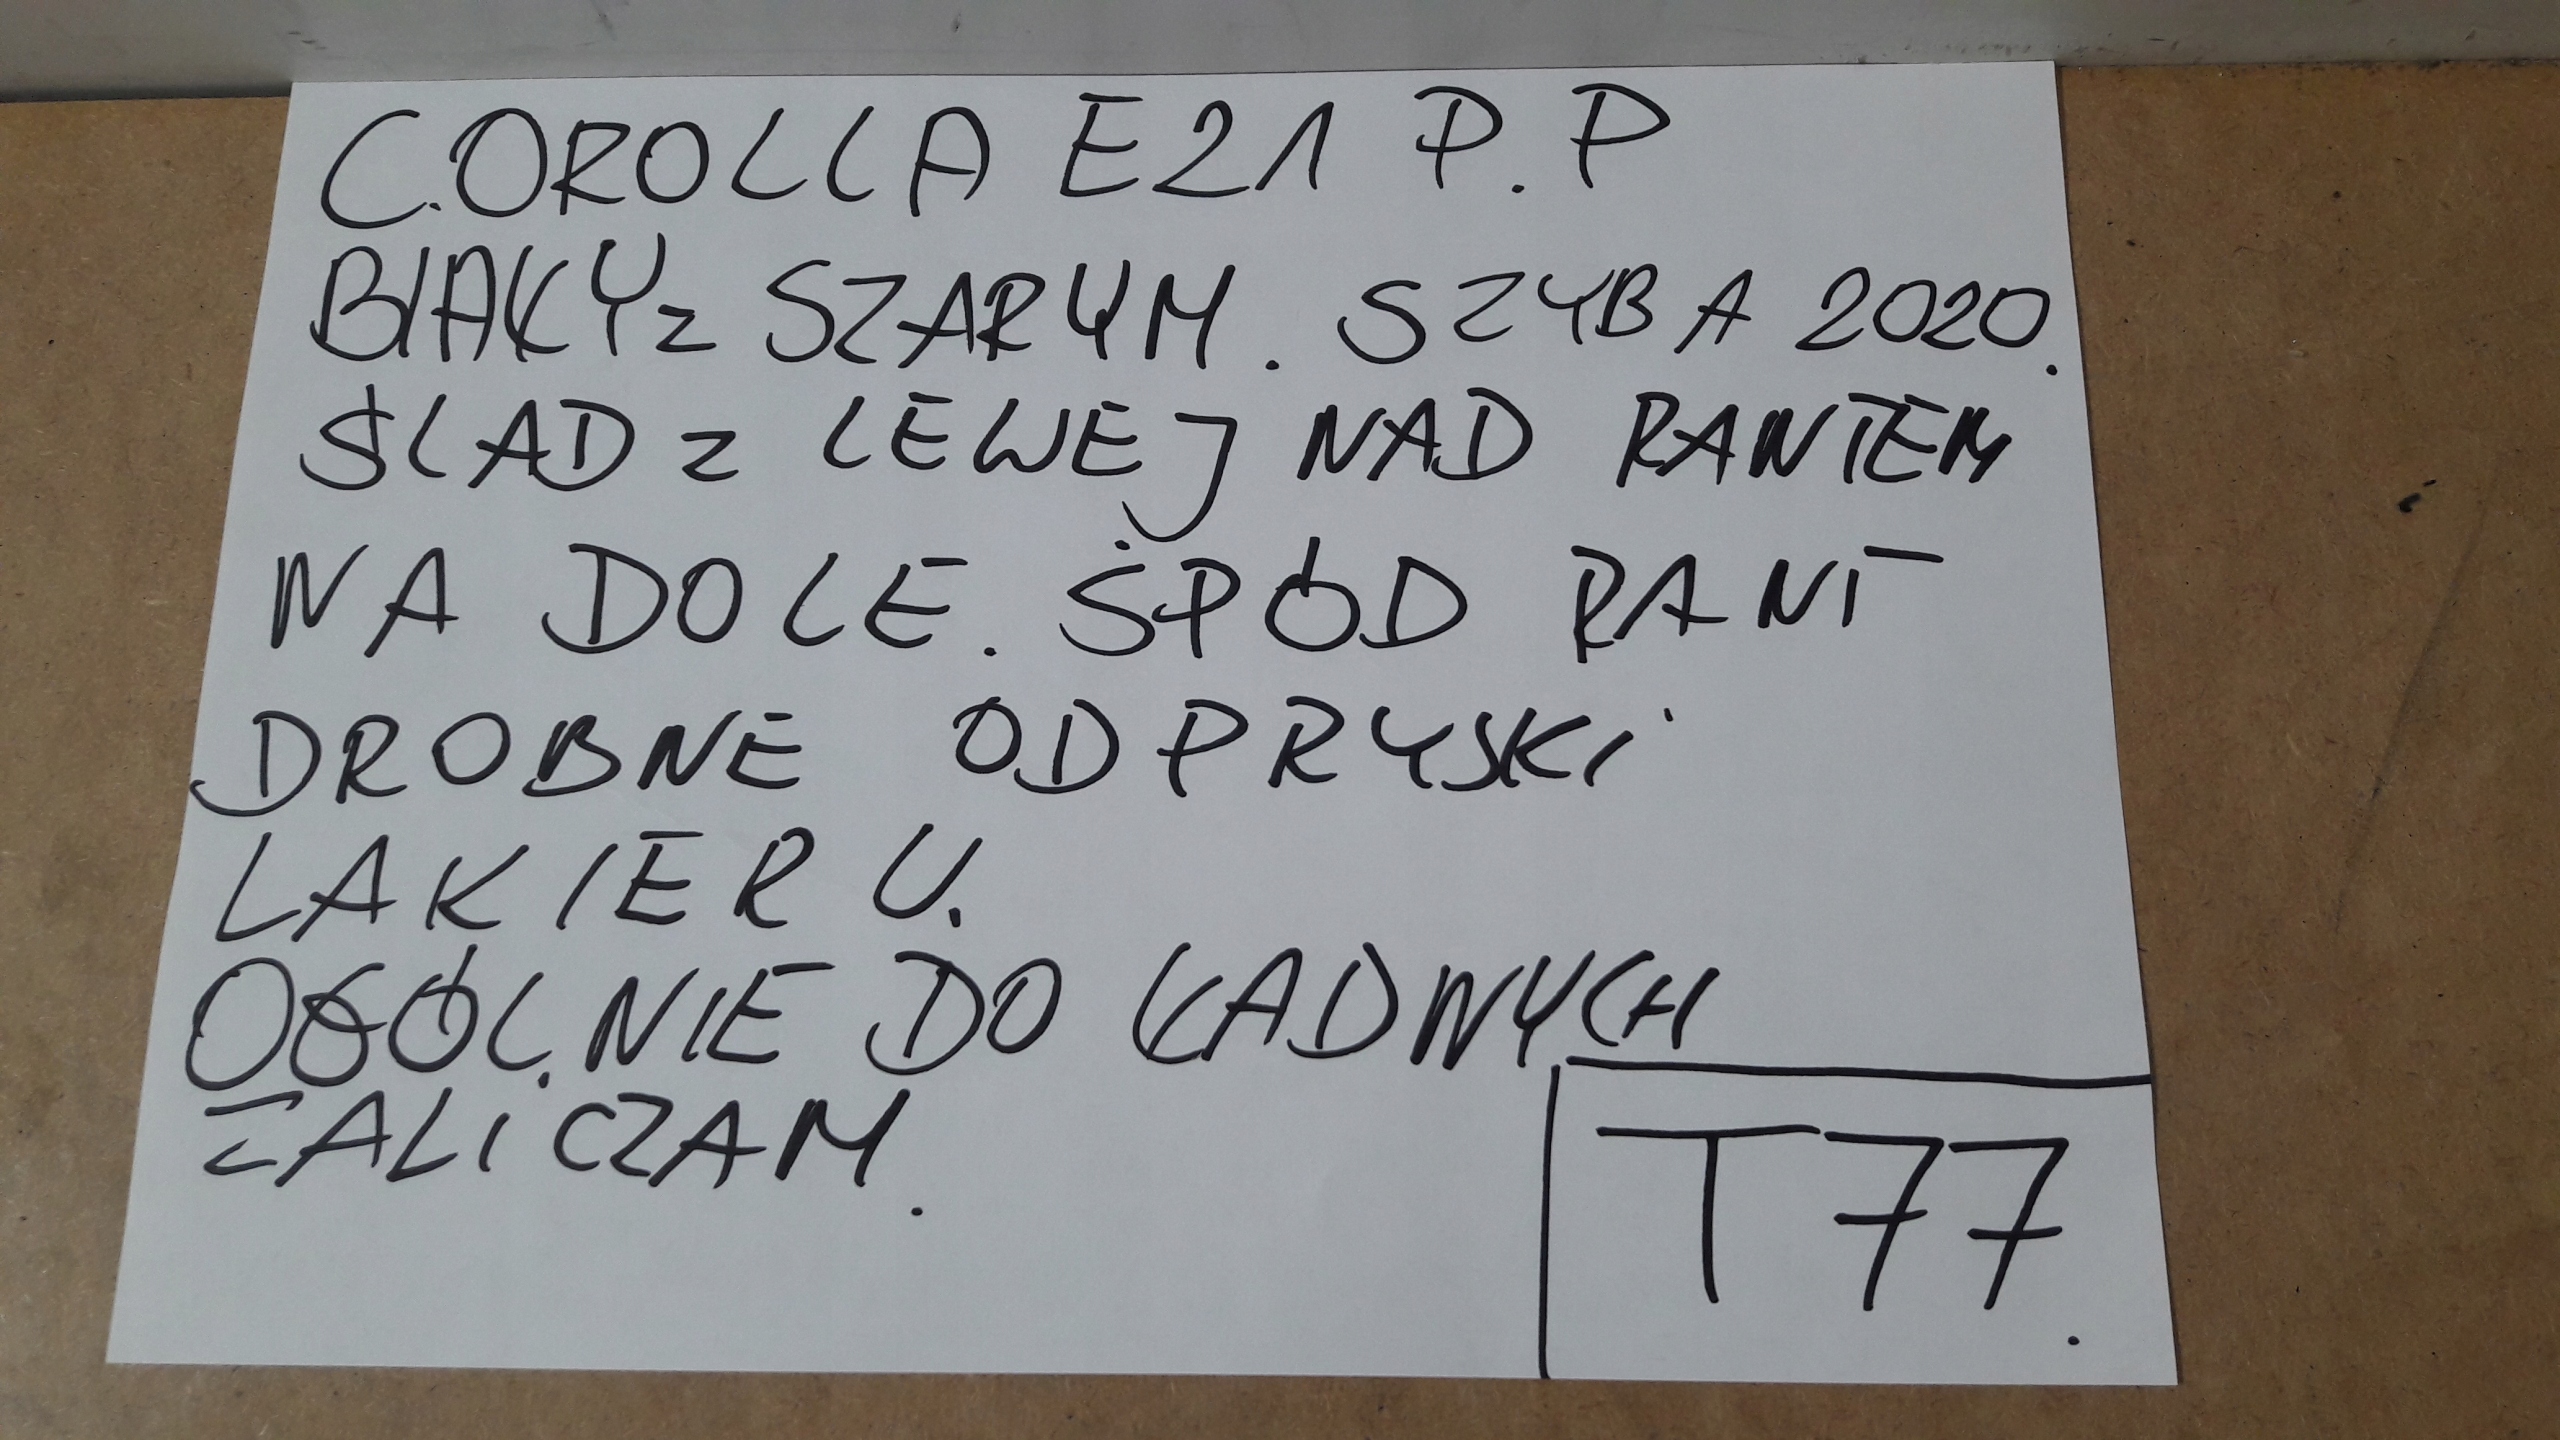 COROLLA E21 P.P
BIAŁY z SZARYM. SZYBA 2020.
ŚLAD z LEWEJ NAD RANTEM
NA DOLE. SPÓD RANT
DROBNE ODPRYSKI
LAKIERU.
OGÓLNIE DO ŁADNYCH
ZALICZAM.
T77.